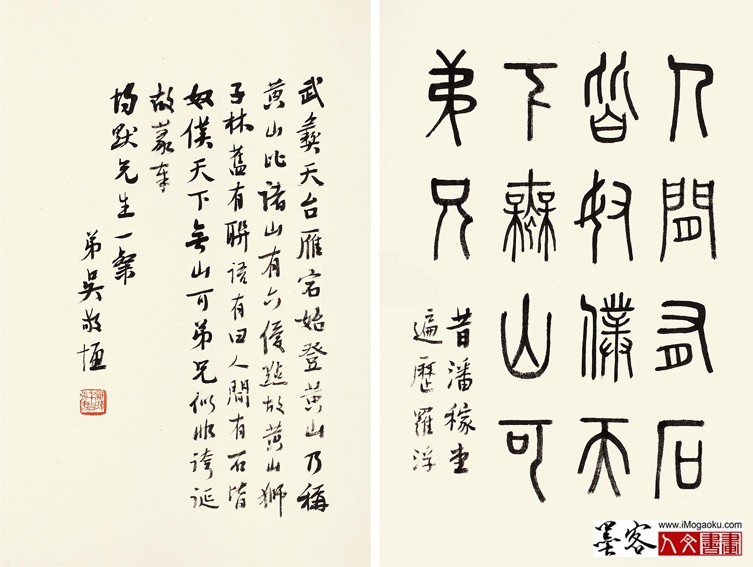 人間有石
皆奴僕天
下無山可
弟兄
昔潘稼堂
遍歷羅浮
武彝天台雁宕始登黃山乃稱
黃山比諸山有六優點故黃山獅
子林舊有聯語有曰人間有石皆
奴僕天下無山可弟兄似非誇誕
故篆奉
均默先生一粲
弟吳敬恆
墨客
www.iMogaoku.com
人文書畫